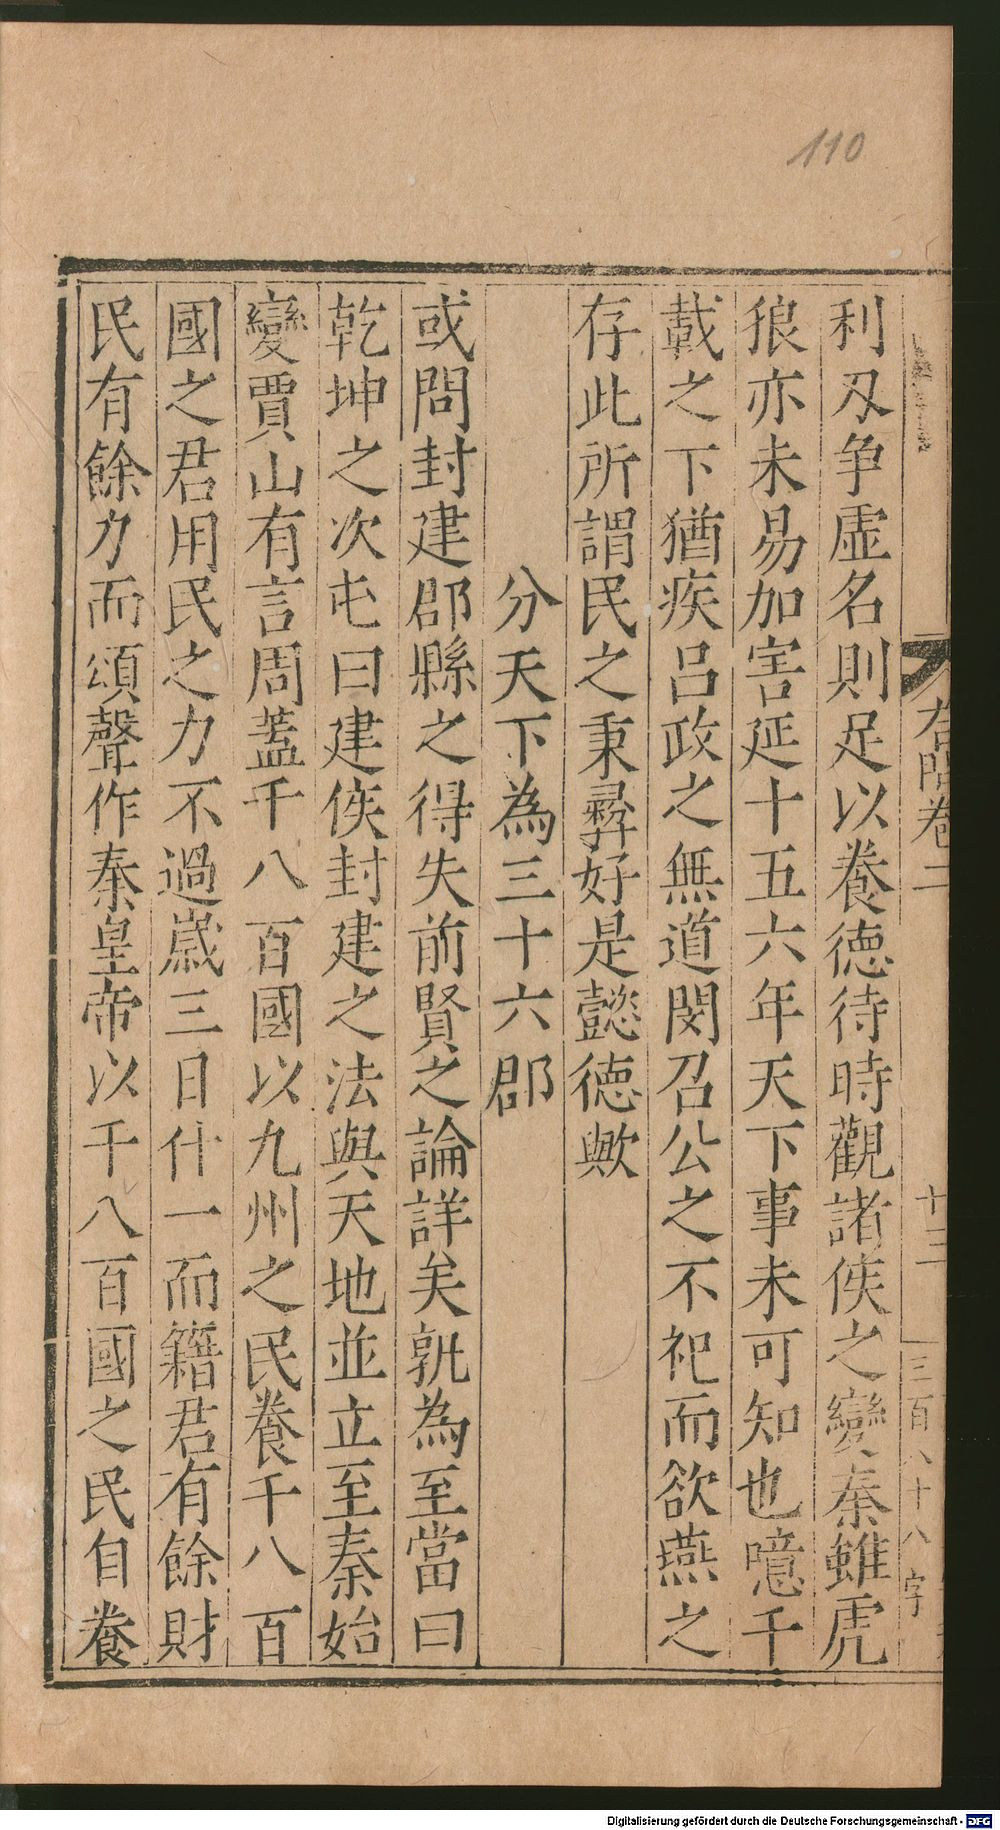 110
利刄争虛名則足以養德待時觀諸侯之變秦雖虎
狼亦未易加害延十五六年天下事未可知也噫千
載之下猶疾呂政之無道閔召公之不祀而欲燕之
存此所謂民之秉彞好是懿德歟
分天下為三十六郡
或問封建郡縣之得失前賢之論詳矣孰為至當曰
乾坤之次屯曰建侯封建之法與天地並立至秦始
變賈山有言周蓋千八百國以九州之民養千八百
國之君用民之力不過歲三日什一而籍君有餘財
民有餘力而頌聲作秦皇帝以千八百國之民自養
卷二
十三
三百八十八字
Digitalisierung gefördert durch die Deutsche Forschungsgemeinschaft - DFG